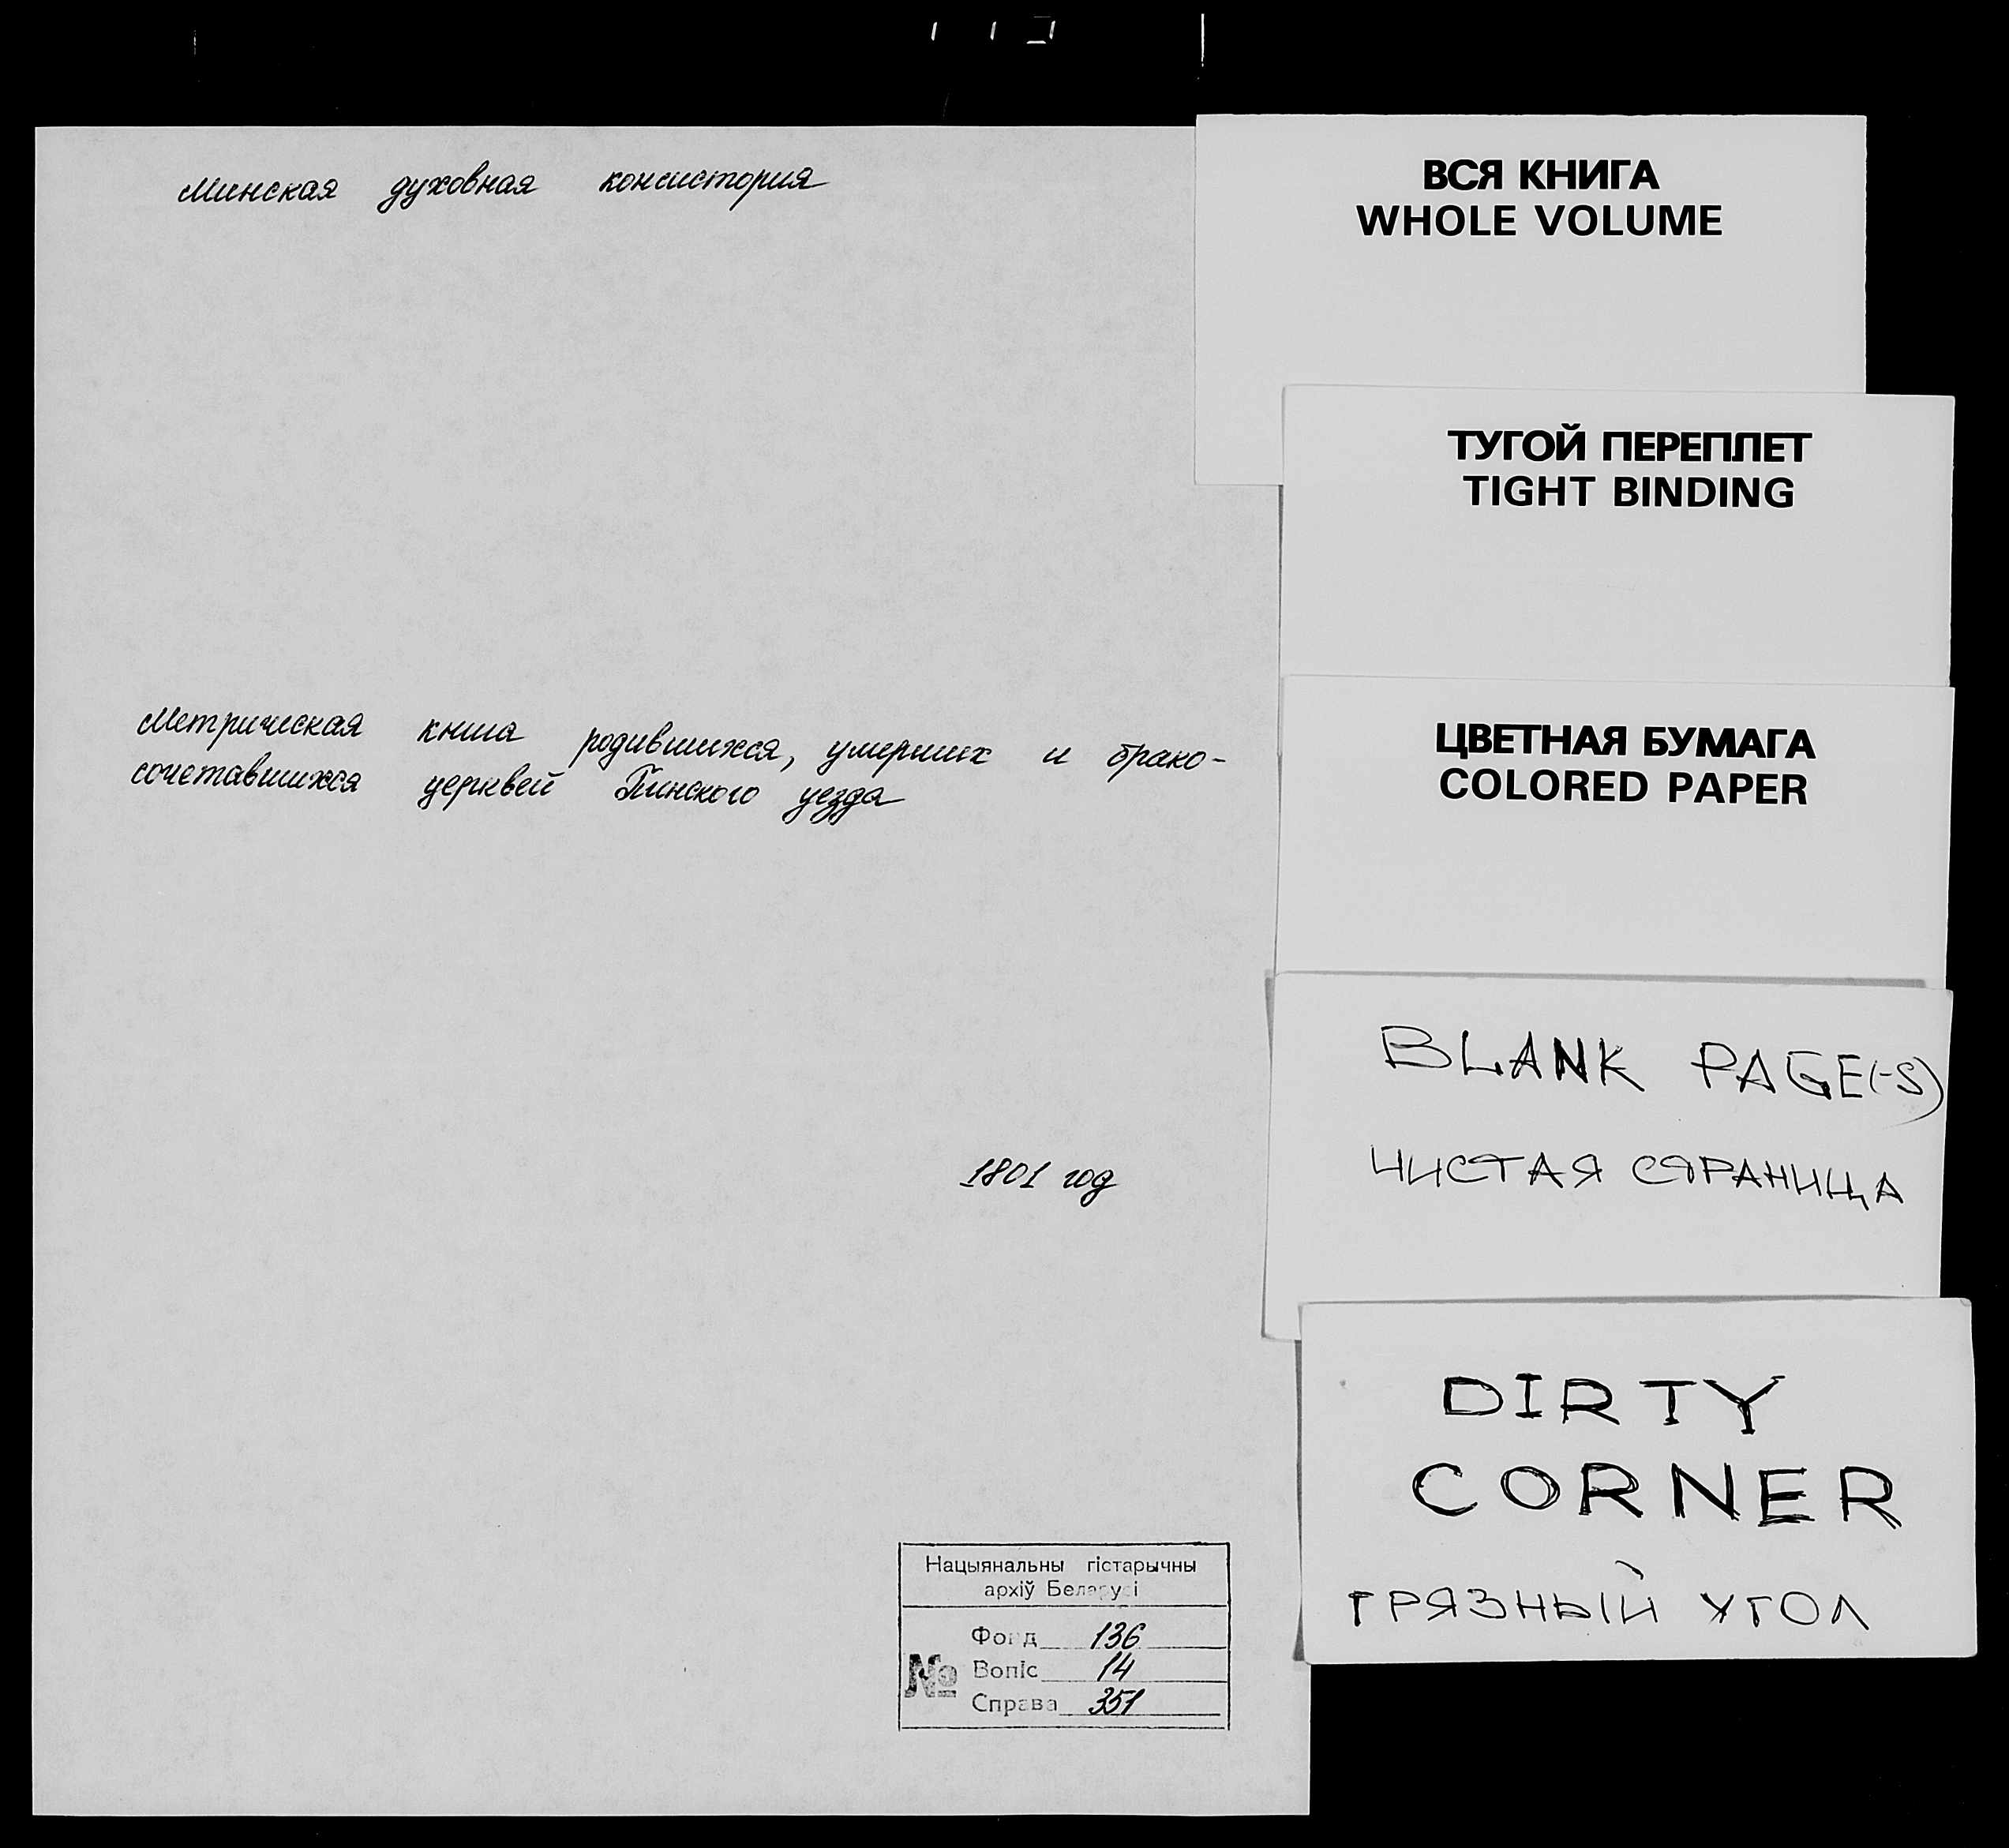 Минская духовная консистория
Метрическая книга родившихся, умерших и брако-
сочетавшихся церквей Пинского уезда
1801 год
Нацыянальны гістарычны
архіў Беларусі
Фонд 136
№ Вопіс 14
Справа 351
ВСЯ КНИГА
WHOLE VOLUME
ТУГОЙ ПЕРЕПЛЕТ
TIGHT BINDING
ЦВЕТНАЯ БУМАГА
COLORED PAPER
BLANK PAGE(-S)
ЧИСТАЯ СТРАНИЦА
DIRTY
CORNER
ГРЯЗНЫЙ УГОЛ